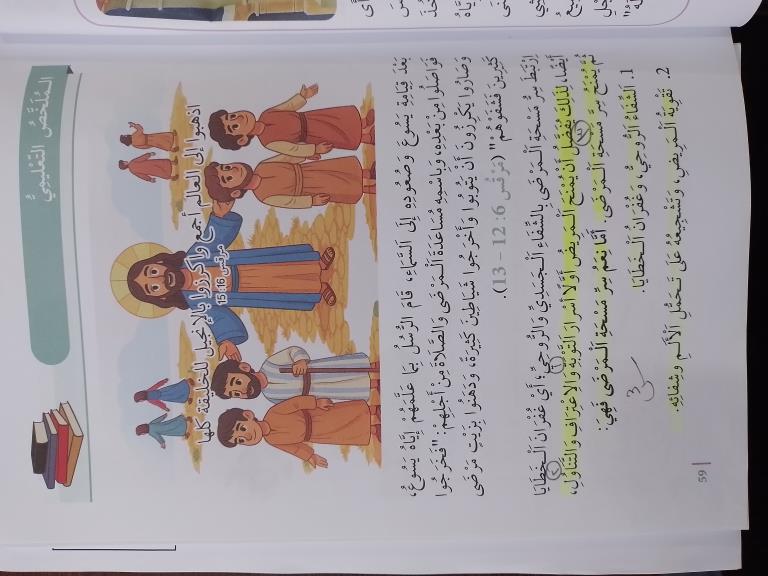 الـمُلَخَّصُ التَّعْلِيمِيُّ
اذهبوا إلى العالم أجمع واكرزوا بالإنجيل للخليقة كلها
مرقس 15:16
بَعْدَ قِيَامَةِ يَسُوعَ وَصُعُودِهِ إِلَى السَّمَاءِ، قَامَ الرُّسُلُ بِمَا عَلَّمَهُمْ إِيَّاهُ يَسُوعُ،
فَوَاصَلُوا مِنْ بَعْدِهِ، وَبِاسْمِهِ مُسَاعَدَةَ الْمَرْضَى وَالصَّلَاةَ مِنْ أَجْلِهِمْ: "فَخَرَجُوا
وَصَارُوا يَكْرِزُونَ أَنْ يَتُوبُوا وَأَخْرَجُوا شَيَاطِينَ كَثِيرَةً، وَدَهَنُوا بِزَيْتٍ مَرْضَى
كَثِيرِينَ فَشَفَوْهُمْ" (مَرْقُس 6: 12 – 13).
اِرْتَبَطَ سِرُّ مَسْحَةِ الْمَرْضَى بِالشِّفَاءِ الْجَسَدِيِّ وَالرُّوحِيِّ؛ أَيْ غُفْرَانَ الْـخَطَايَا
أَيْضًا، لِذَلِكَ يُفَضَّلُ أَنْ يُمْنَحَ الْـمَرِيضُ أَوَّلًا أَسْرَارَ التَّوْبَةِ وَالِاعْتِرَافِ وَالتَّنَاوُلِ،
ثُمَّ يُمْنَحُ سِرَّ مَسْحَةِ الْـمَرْضَى. أَمَّا نِعَمُ سِرِّ مَسْحَةِ الْـمَرْضَى فَهِيَ:
1. الشِّفَاءُ الرُّوحِيُّ، وَغُفْرَانُ الْـخَطَايَا.
2. تَقْوِيَةُ الْـمَرِيضِ، وَتَشْجِيعُهُ عَلَى تَحَمُّلِ الْأَلَمِ وَشِفَائِهِ.
59